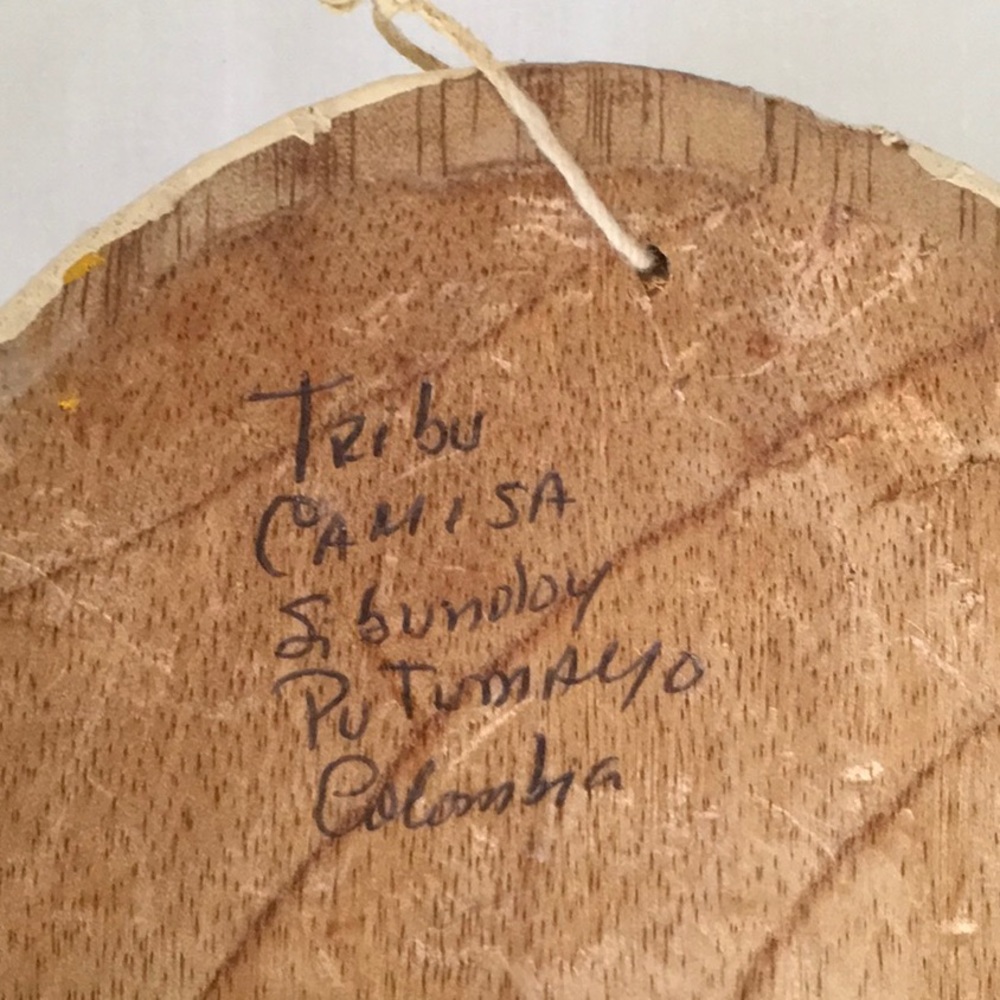 Tribu
CAMISA
Sibundoy
PuTumAyo
Colombia